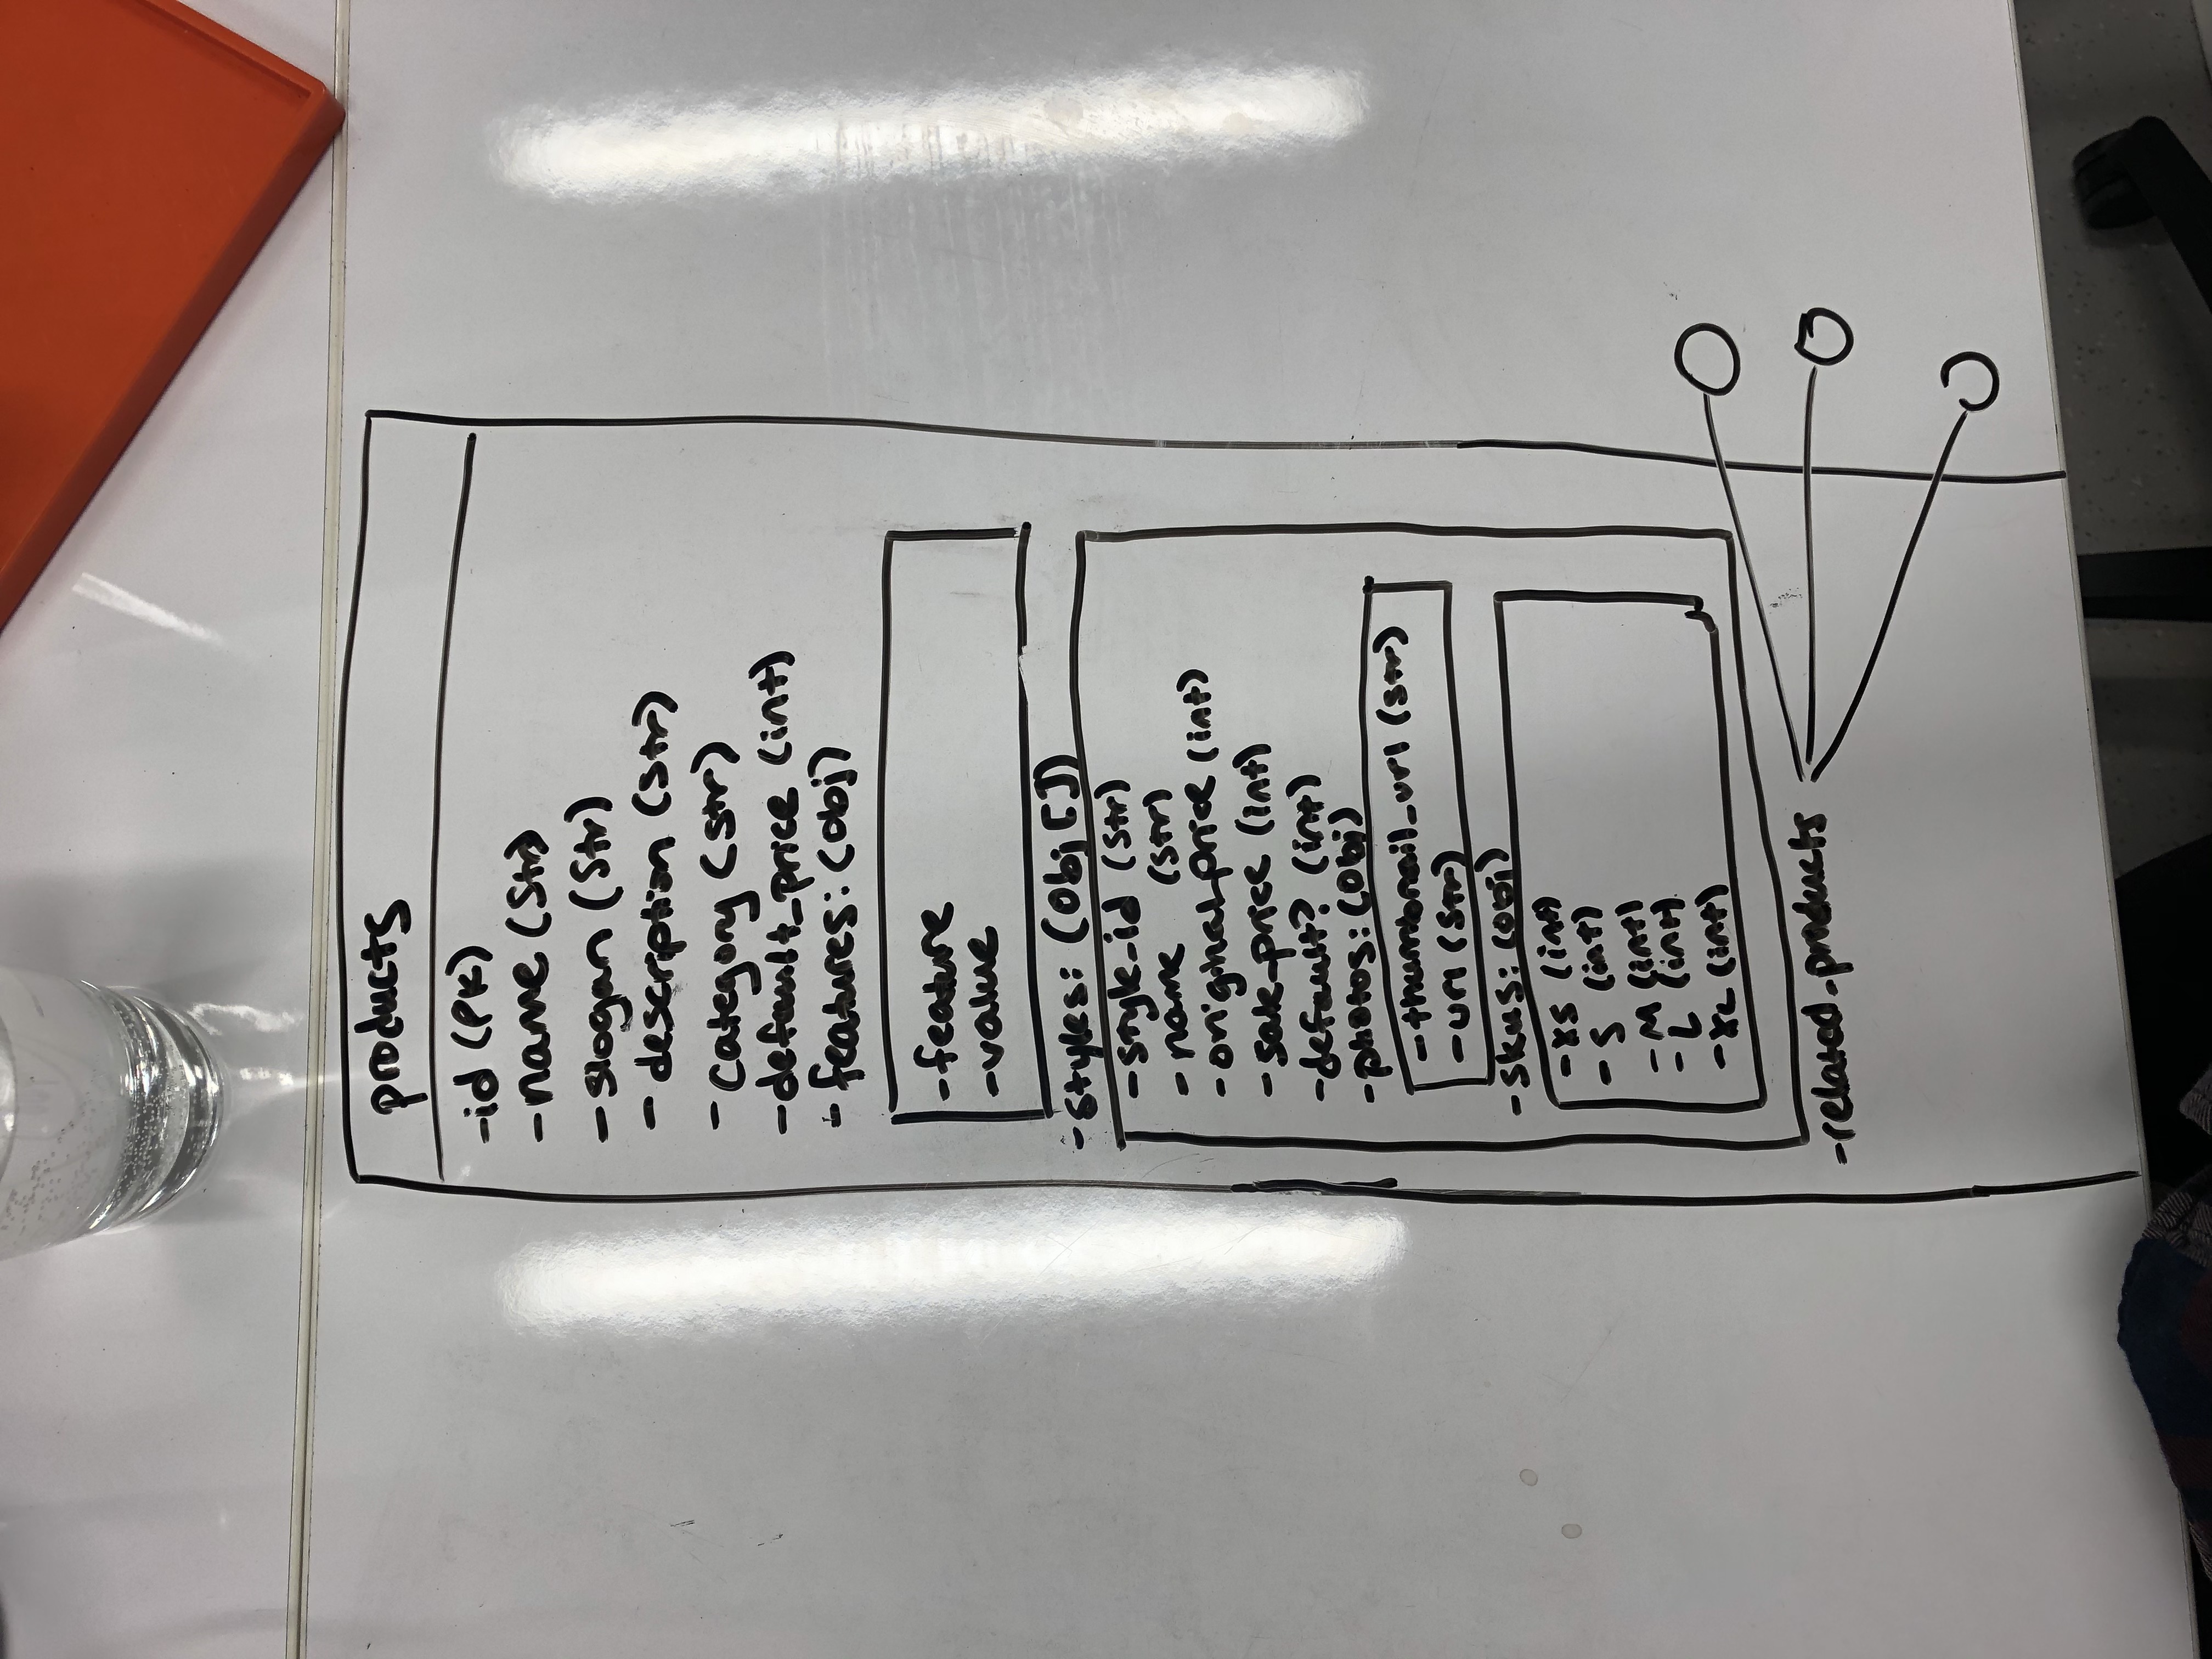 products
-id (PK)
-name (Str)
-slogan (Str)
- description (Str)
- Category (str)
-default_price (int)
- features: (Obj)
-feature
-value
-styles: (Obj[])
-style_id (Str)
-name (Str)
-original_price (int)
-sale_price (int)
-default? (int)
-photos: (Obj)
-thumbnail_url (str)
-url (Str)
-skus: (obj)
-XS (int)
-S (int)
-M (int)
-L (int)
-XL (int)
-related_products